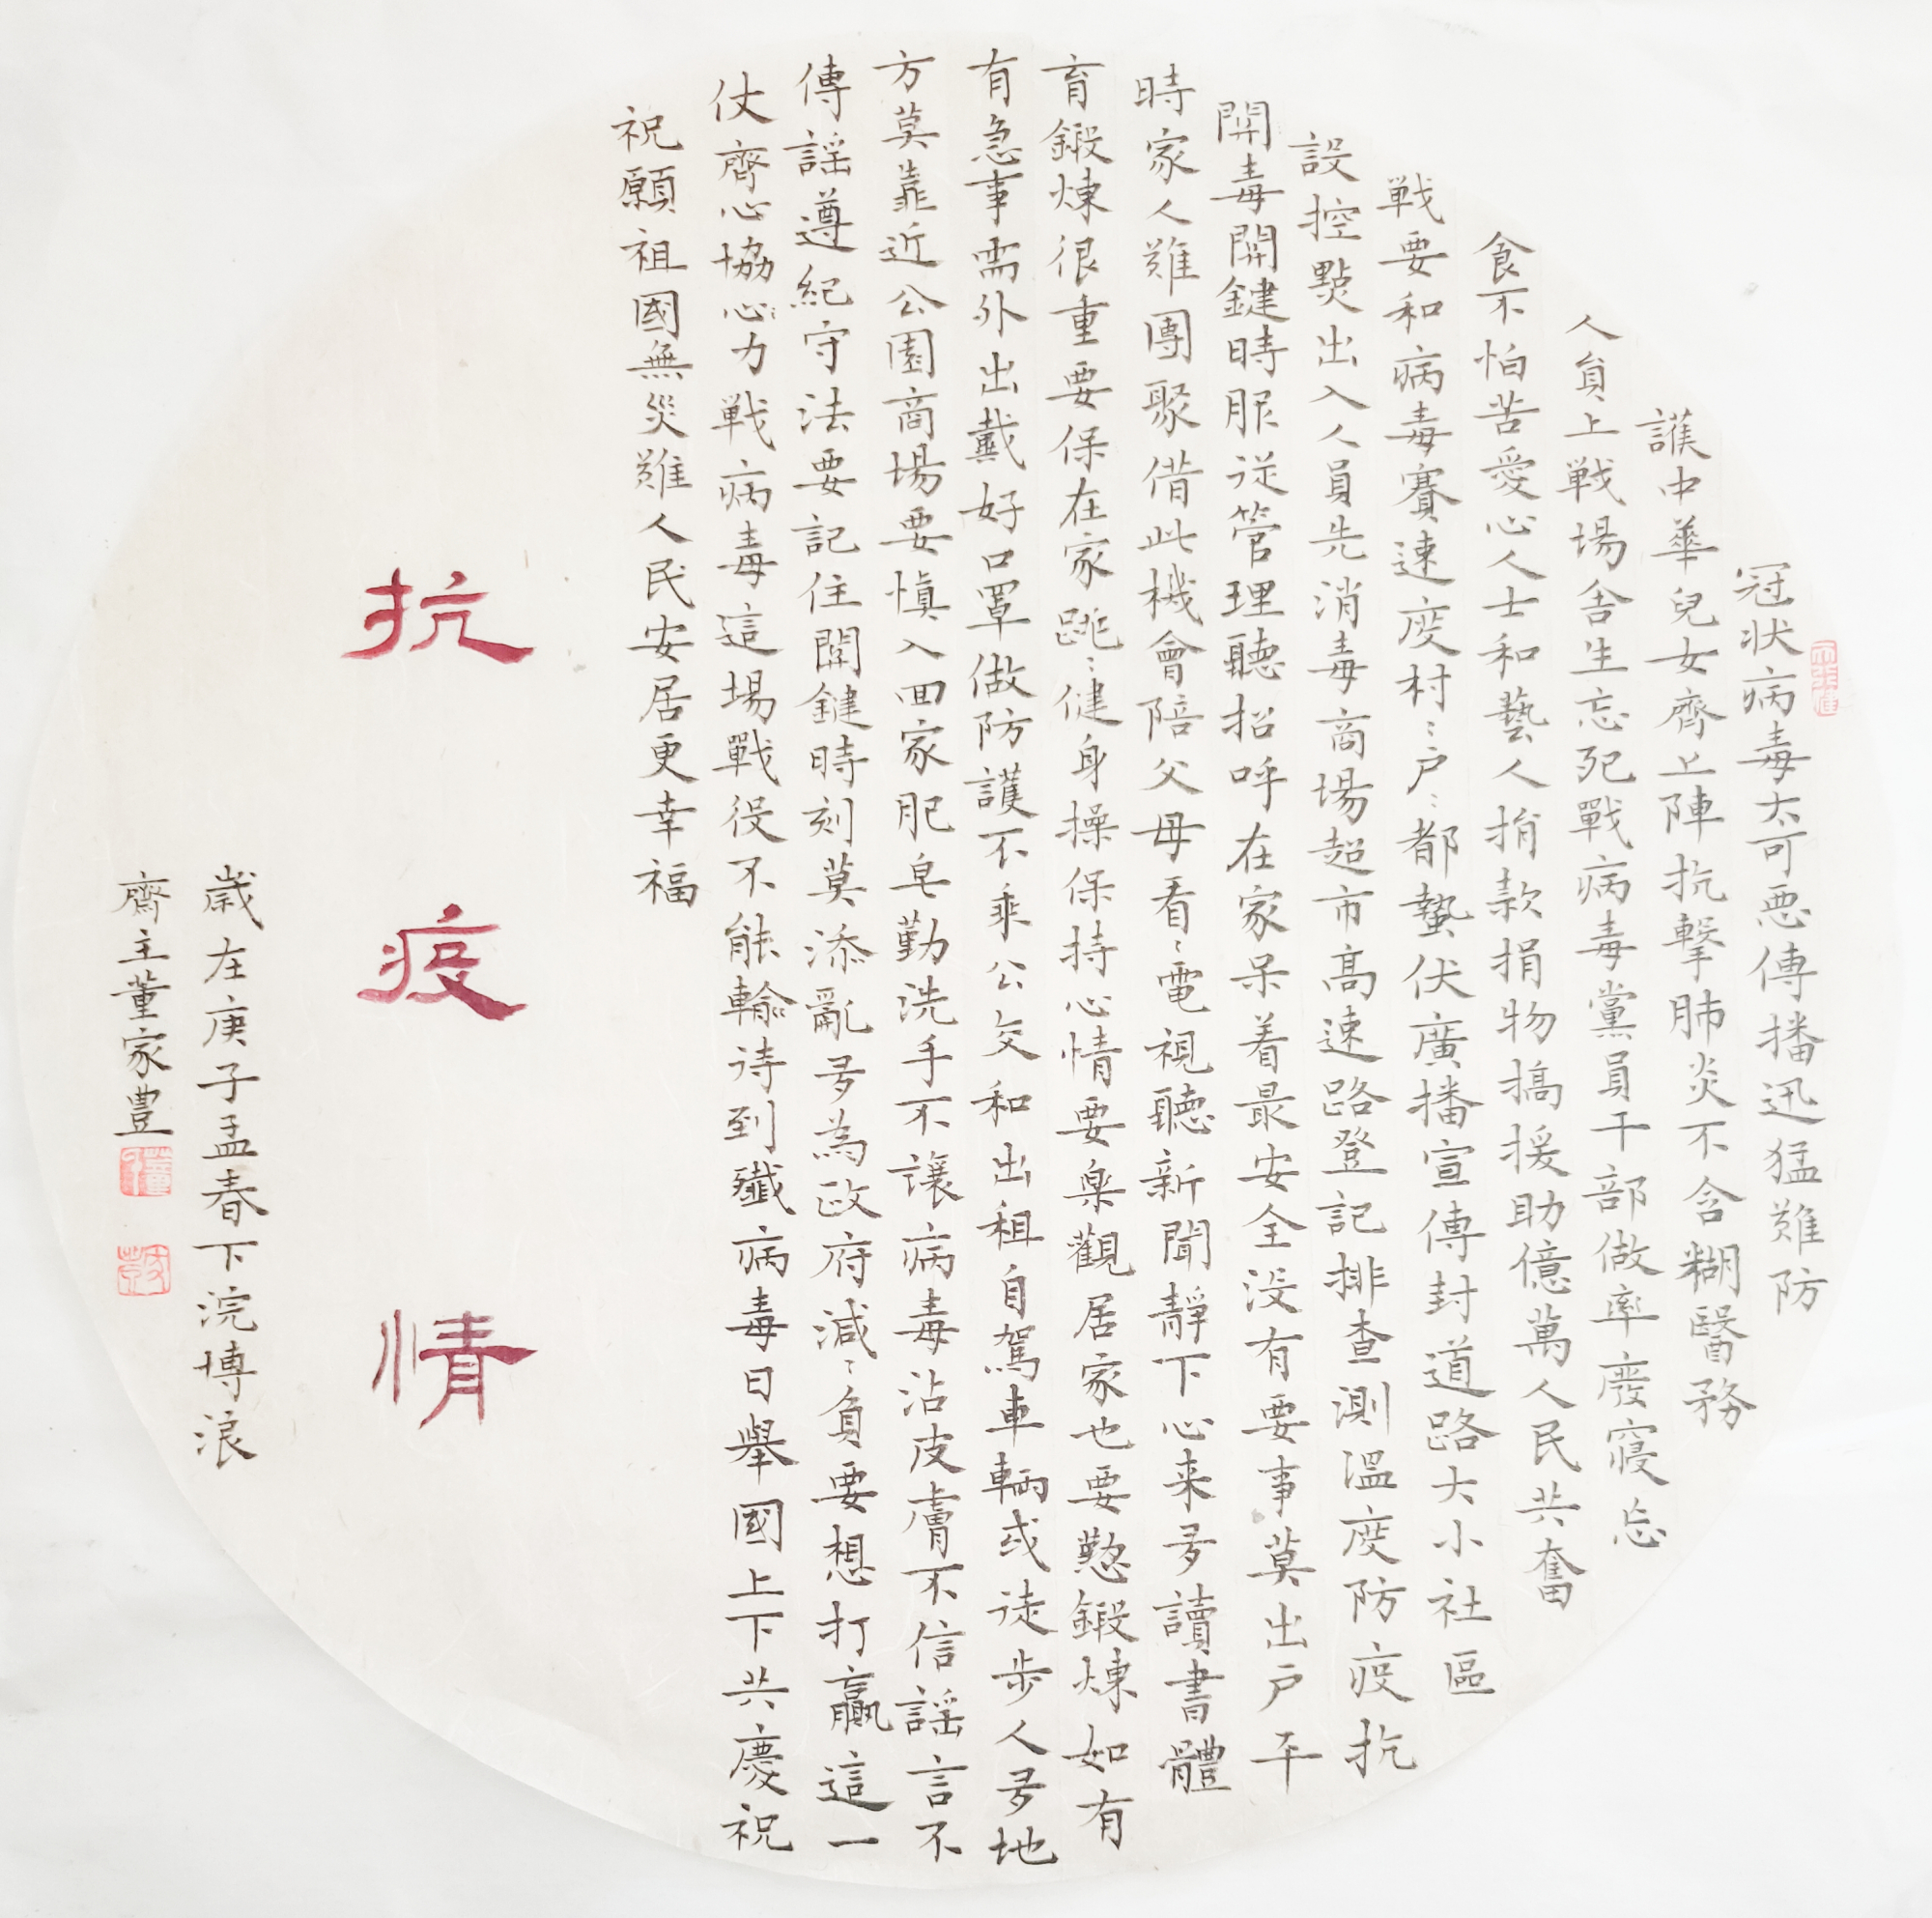 冠状病毒太可恶傳播迅猛難防
護中華兒女齊上陣抗擊肺炎不含糊醫務
人員上戦場舍生忘死戰病毒黨員干部做率廢寝忘
食不怕苦愛心人士和藝人捐款捐物搞援助億萬人民共奮
戦要和病毒賽速度村〻户〻都蟄伏廣播宣傳封道路大小社區
設控點出入人員先消毒商場超市高速路登記排查測溫度防疫抗
開毒開鍵時服從管理聽招呼在家呆着最安全没有要事莫出户平
時家人難團聚借此機會陪父母看〻電視聽新聞靜下心来多讀書體
育鍛煉很重要保在家跳〻健身操保持心情要樂觀居家也要懃鍛煉如有
有急事需外出戴好口罩做防護不乘公交和出租自駕車輛或徒步人多地
方莫靠近公園商場要慎入回家肥皂勤洗手不讓病毒沾皮膚不信謡言不
傳謡遵紀守法要記住關鍵時刻莫添亂多為政府減〻負要想打贏這一
仗齊心協力戦病毒這場戰役不能輸待到殲病毒日舉國上下共慶祝
祝願祖國無災難人民安居更幸福
抗疫情
歲在庚子孟春下浣博浪
齋主董家豊